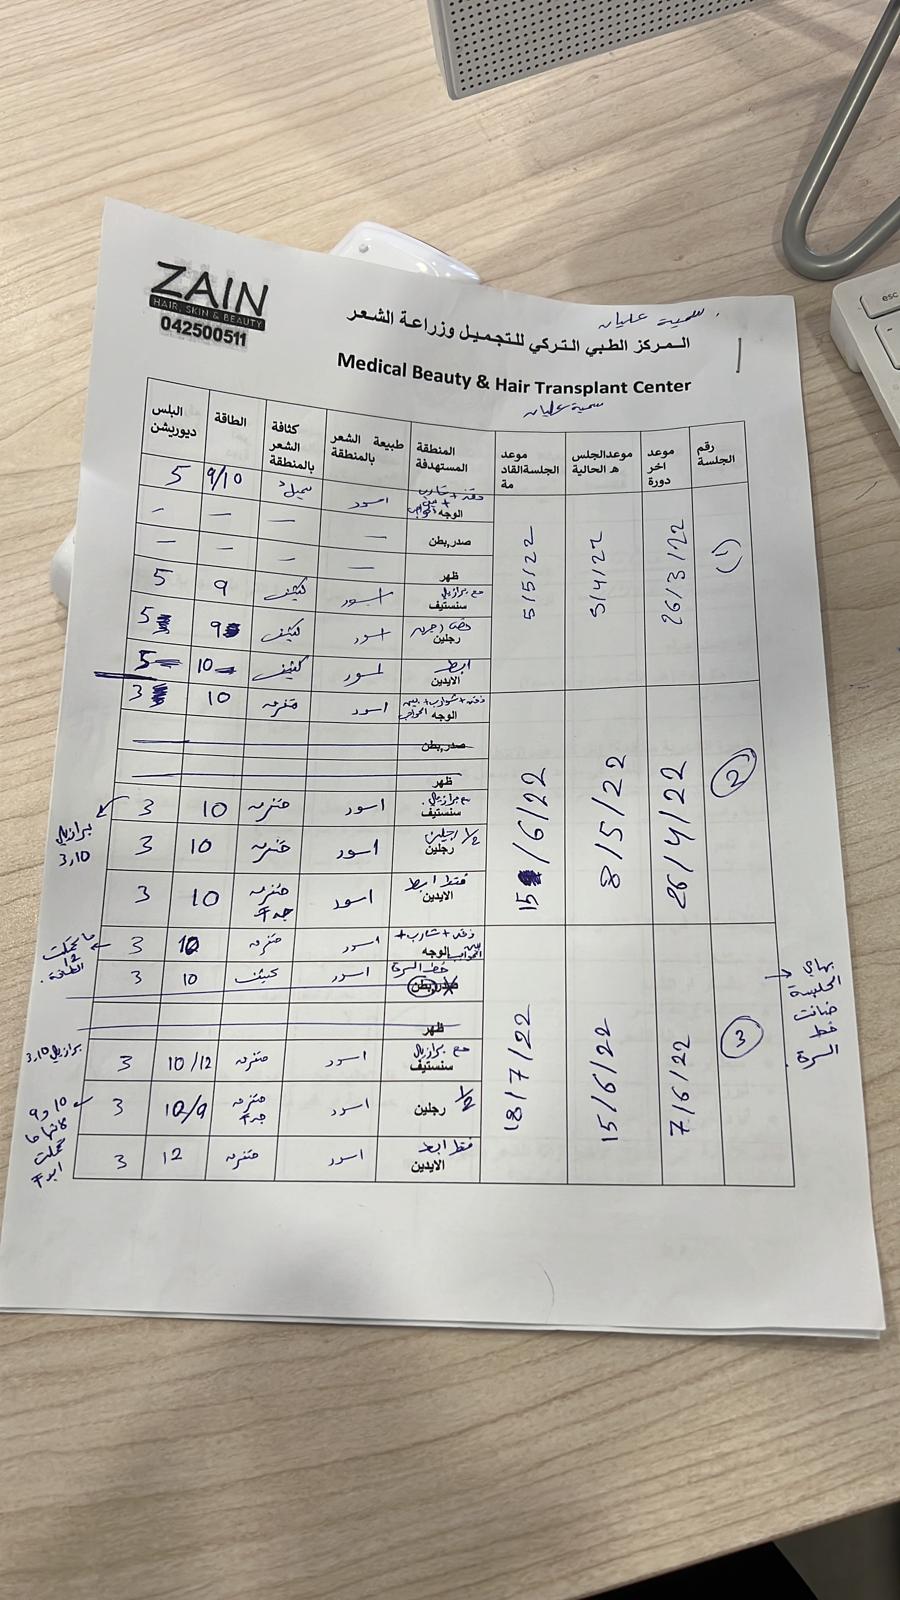 ZAIN
HAIR, SKIN & BEAUTY
042500511
سمية عليان
المركز الطبي التركي للتجميل وزراعة الشعر
Medical Beauty & Hair Transplant Center
سمية عليان
رقم الجلسة | موعد اخر دورة | موعدالجلسه الحالية | موعد الجلسةالقادمة | المنطقة المستهدفة | طبيعة الشعر بالمنطقة | كثافة الشعر بالمنطقة | الطاقة | البلس ديوريشن
(1) | 26/3/22 | 5/4/22 | 5/5/22
ذقن + شارب + بين الحواجب الوجه | اسود | 9/10 | 5
صدر,بطن | — | — | — | —
ظهر | — | — | — | —
مع برازيلي سنستيف | اسود | كثيف | 9 | 5
رجلين | اسود | كثيف | 9 | 5
ابط الايدين | اسود | كثيف | 10 | 5
2 | 26/4/22 | 8/5/22 | 15/6/22
ذقن + شوارب + بين الحواجب الوجه | اسود | متفرق | 10 | 3
صدر,بطن
ظهر
مع برازيلي سنستيف | اسود | متفرق | 10 | 3
برازيلي 3,10
1/2 رجلين رجلين | اسود | متفرق | 10 | 3
فقط ابط الايدين | اسود | متفرق جدا | 10 | 3
3 | 7/6/22 | 15/6/22 | 18/7/22
ذقن + شارب + بين الحواجب الوجه | اسود | متفرق | 10 | 3
ما تحملت 12 الطاقة
خط السرة صدر,بطن | اسود | خفيف | 10 | 3
بهاي الجلسة ضافت خط السرة
ظهر
مع برازيلي سنستيف | اسود | متفرق | 10/12 | 3
برازيلي 3,10
1/2 رجلين | اسود | متفرق جدا | 10/9 | 3
10 و 9 لانها ما تحملت ابدا
فقط ابط الايدين | اسود | متفرق | 12 | 3
esc